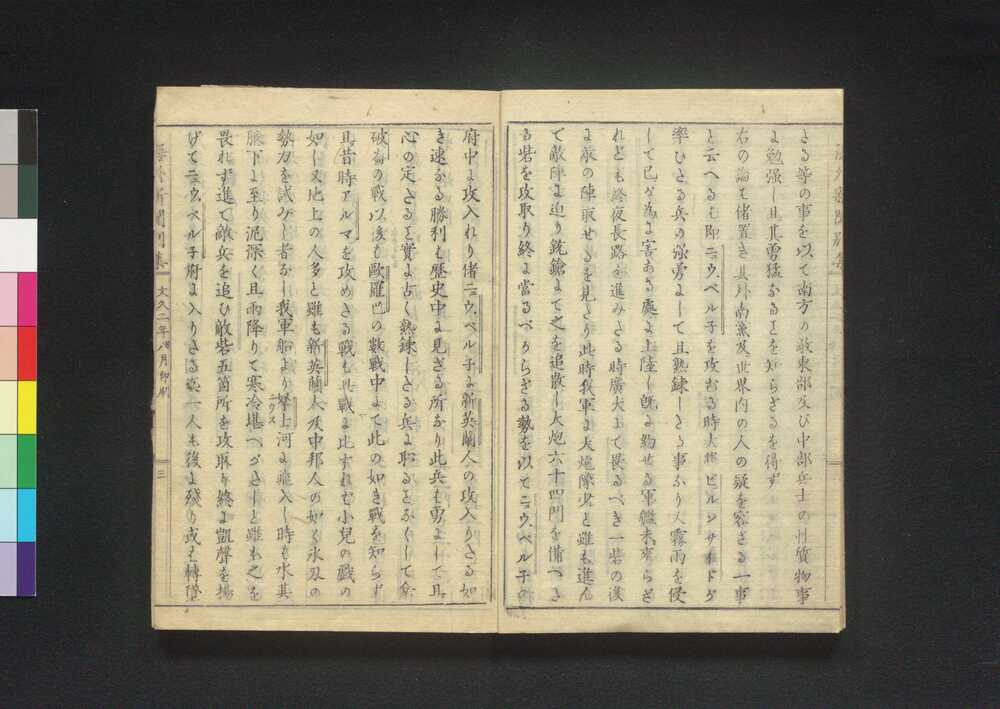 さる等の事を以て南方の敵東部及び中部兵士の性質物事
よ勉强し且其勇猛なるとを知らざるを得ず
右の論も偖置き其外南兼及世界内の人の疑を容ざる一事
と云へるも即ニウ、ベル子を攻むる時大将ビルンサイドが
率ひたる兵の強勇よして且熟練したる事なり人霧雨を侵
して已が為よ害ある處よ上陸し既よ約せる軍艦未来らざ
れども終夜長路を進みたる時廣大よて畏るべき一砦の後
よ敵の陣取せるを見たり此時我軍よ大炮隊少と雖も進ん
で敵陣よ迫り銃鎗よて之を追散し大炮六十四門を備へた
る砦を攻取り終よ當るべからざる勢を以てニウ、ベル子の
府中よ攻入れり偖ニウ、ベル子よ新英蘭人の攻入りたる如
き速なる勝利も歴史中よ見ざる所なり此兵も勇よして且
心の定たると實よ古く熟練したる兵よ耻るとなくして
破
の戦以後も歐羅巴の數戦中よて此の如き戦を知らず
且昔時アルマを攻めたる戦も此戦よ比すれば小兒の戯の
如し又地上の人多と雖も新英蘭人及中邦人の如く氷刄の
勢力を試みし者なし我軍船より
上
ニウス
河よ飛入し時も水其
腋下よ至り泥深く且雨降りて寒冷堪へがたしと雖も之を
畏れず進て敵兵を追ひ敵砦五箇所を攻取り終よ凱聲を揚
げてニウ、ベル子府よ入りたる姿一人も後よ残り或も轉
海外新聞別集
文久二年八月印刷
三